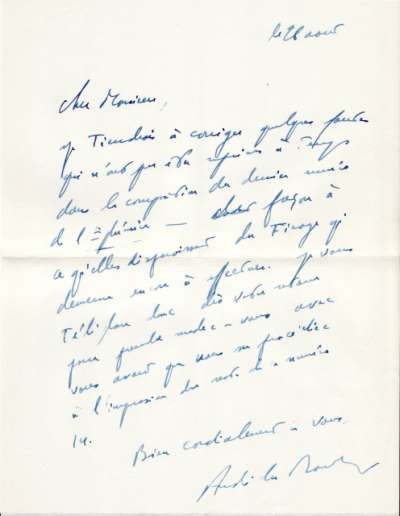 le 26 août
Cher Monsieur,
je tiendrais à corriger quelques fautes
qui n'ont pas été reprises à temps
dans la composition du dernier numéro
de l' — façon à
ce qu'elles disparaissent du tirage qui
demeure encore à effectuer. Je vous
téléphone dès votre retour
pour prendre rendez-vous avec
vous avant que vous ne procédiez
à l'impression du numéro
14.
Bien cordialement à vous.